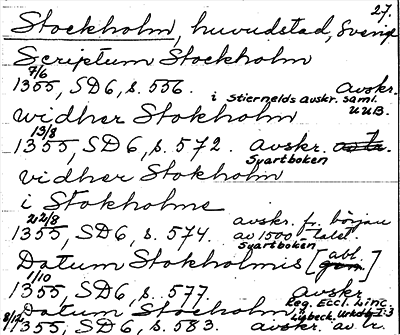 27.
Stockholm, huvudstad, Sverige
Scriptum Stockholm
7/6
1355, SD6, s. 556. avskr.
i Stiernelds avskr. saml. UUB.
widher Stokholm
13/8
1355, SD6, s. 572. avskr.
Svartboken
vidher Stokholm
i Stokholme
22/8
1355, SD6, s. 574. avskr. fr. början av 1500-talet
Svartboken
Datum Stokholmis [abl.]
1/10
1355, SD6, s. 577. avskr.
Reg. Eccl. Linc.
Datum Stocholm,
1355, SD6, s. 583. avskr. av tr.